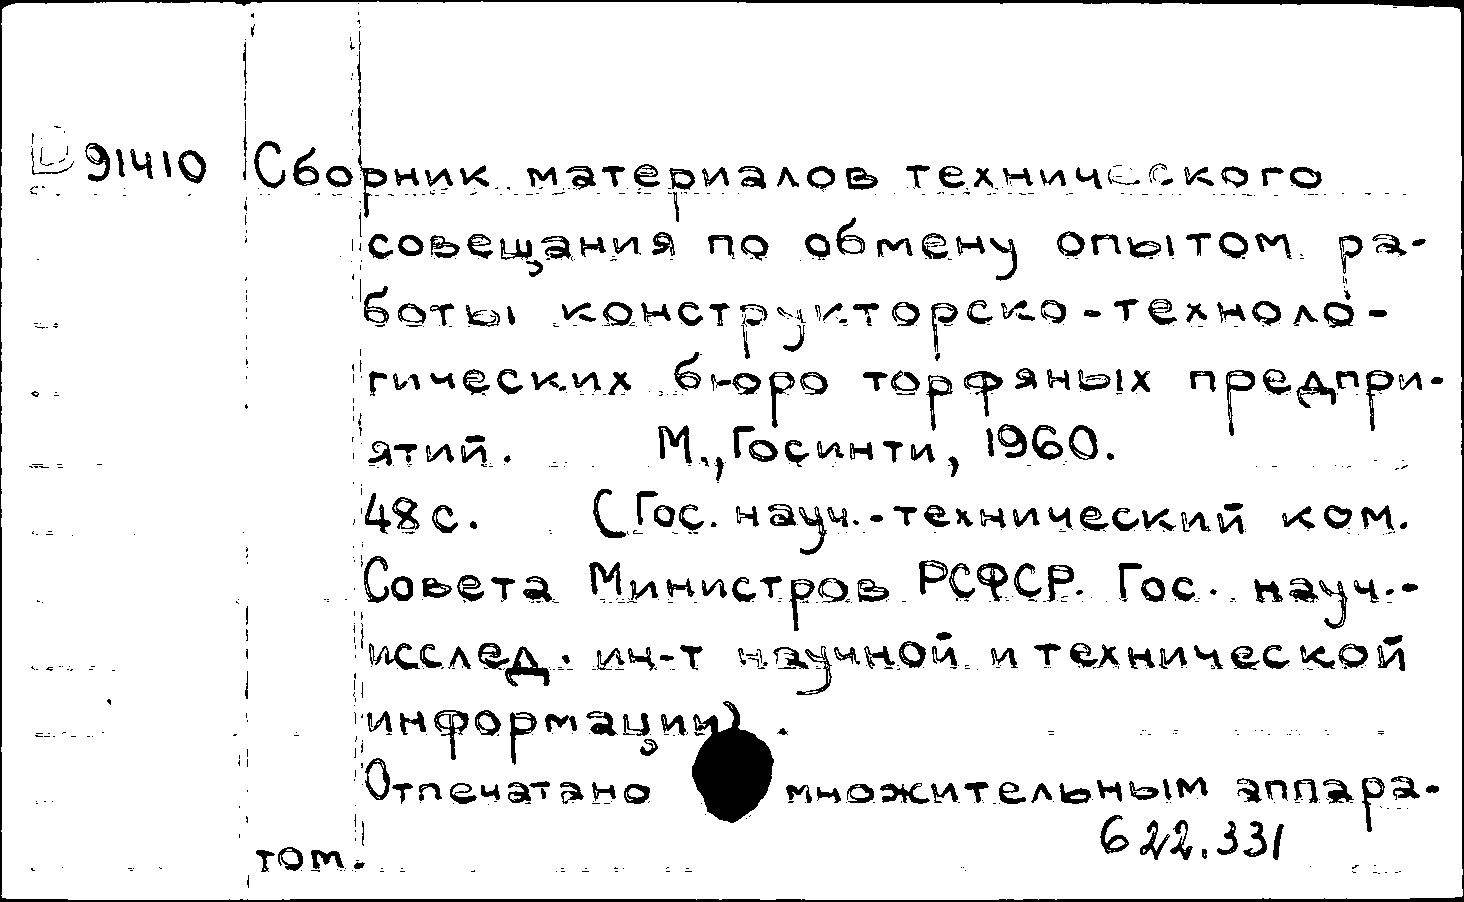 D 91410 Сборник материалов технического
совещания по обмену опытом ра-
боты конструкторско-техноло-
гических бюро торфяных предпри-
ятий. М., Госинти, 1960.
48 с. (Гос. науч.-технический ком.
Совета Министров РСФСР. Гос. науч.-
исслед. ин-т научной и технической
информации).
Отпечатано множительным аппара-
том. 622.331